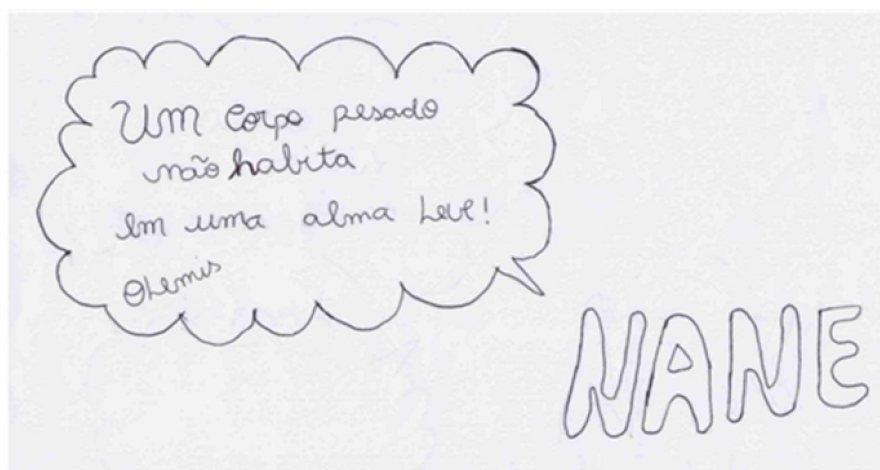 Um corpo pesado
não habita
em uma alma leve!
Olemis
NANE